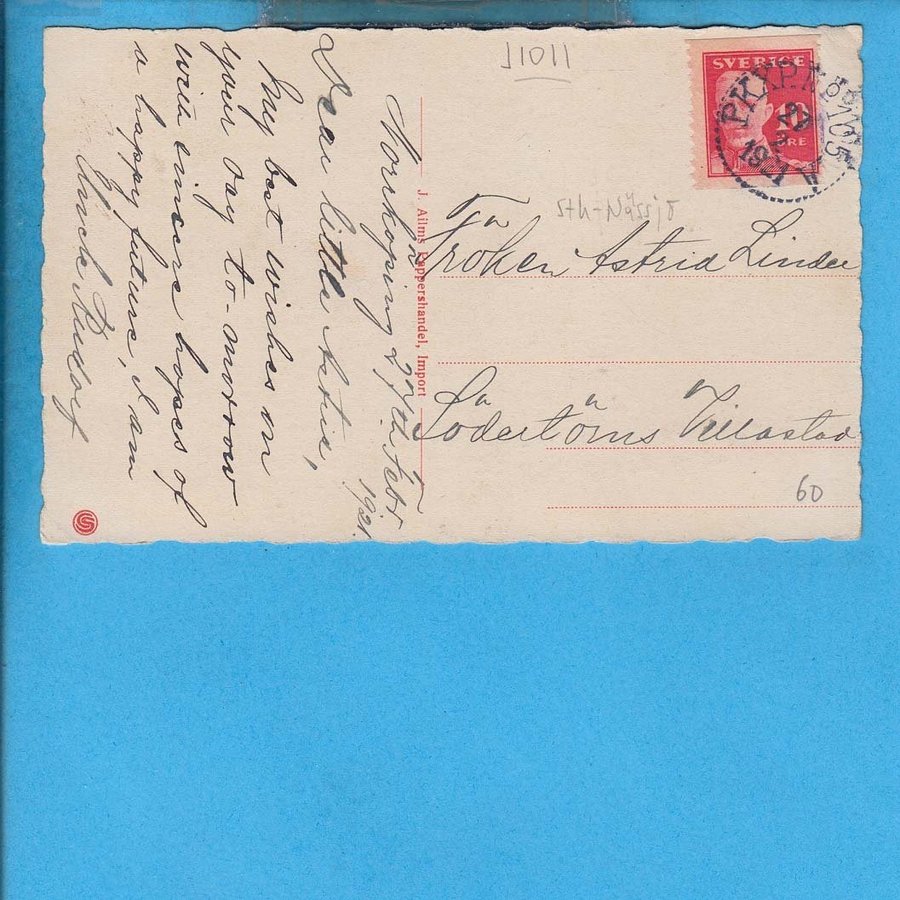 J1011
SVERIGE
10
ÖRE
PKXP. Nº 105 A
27
2
1921
sth-Nässjö
Fröken Astrid Linder
Södertörns Villastad
60
J. Ailms Pappershandel, Import
Norrköping 27th Febr
1921.
Dear little Astrid,
My best wishes on
your day to-morrow
with sincere hopes of
a happy future, I am
Uncle Rudolf